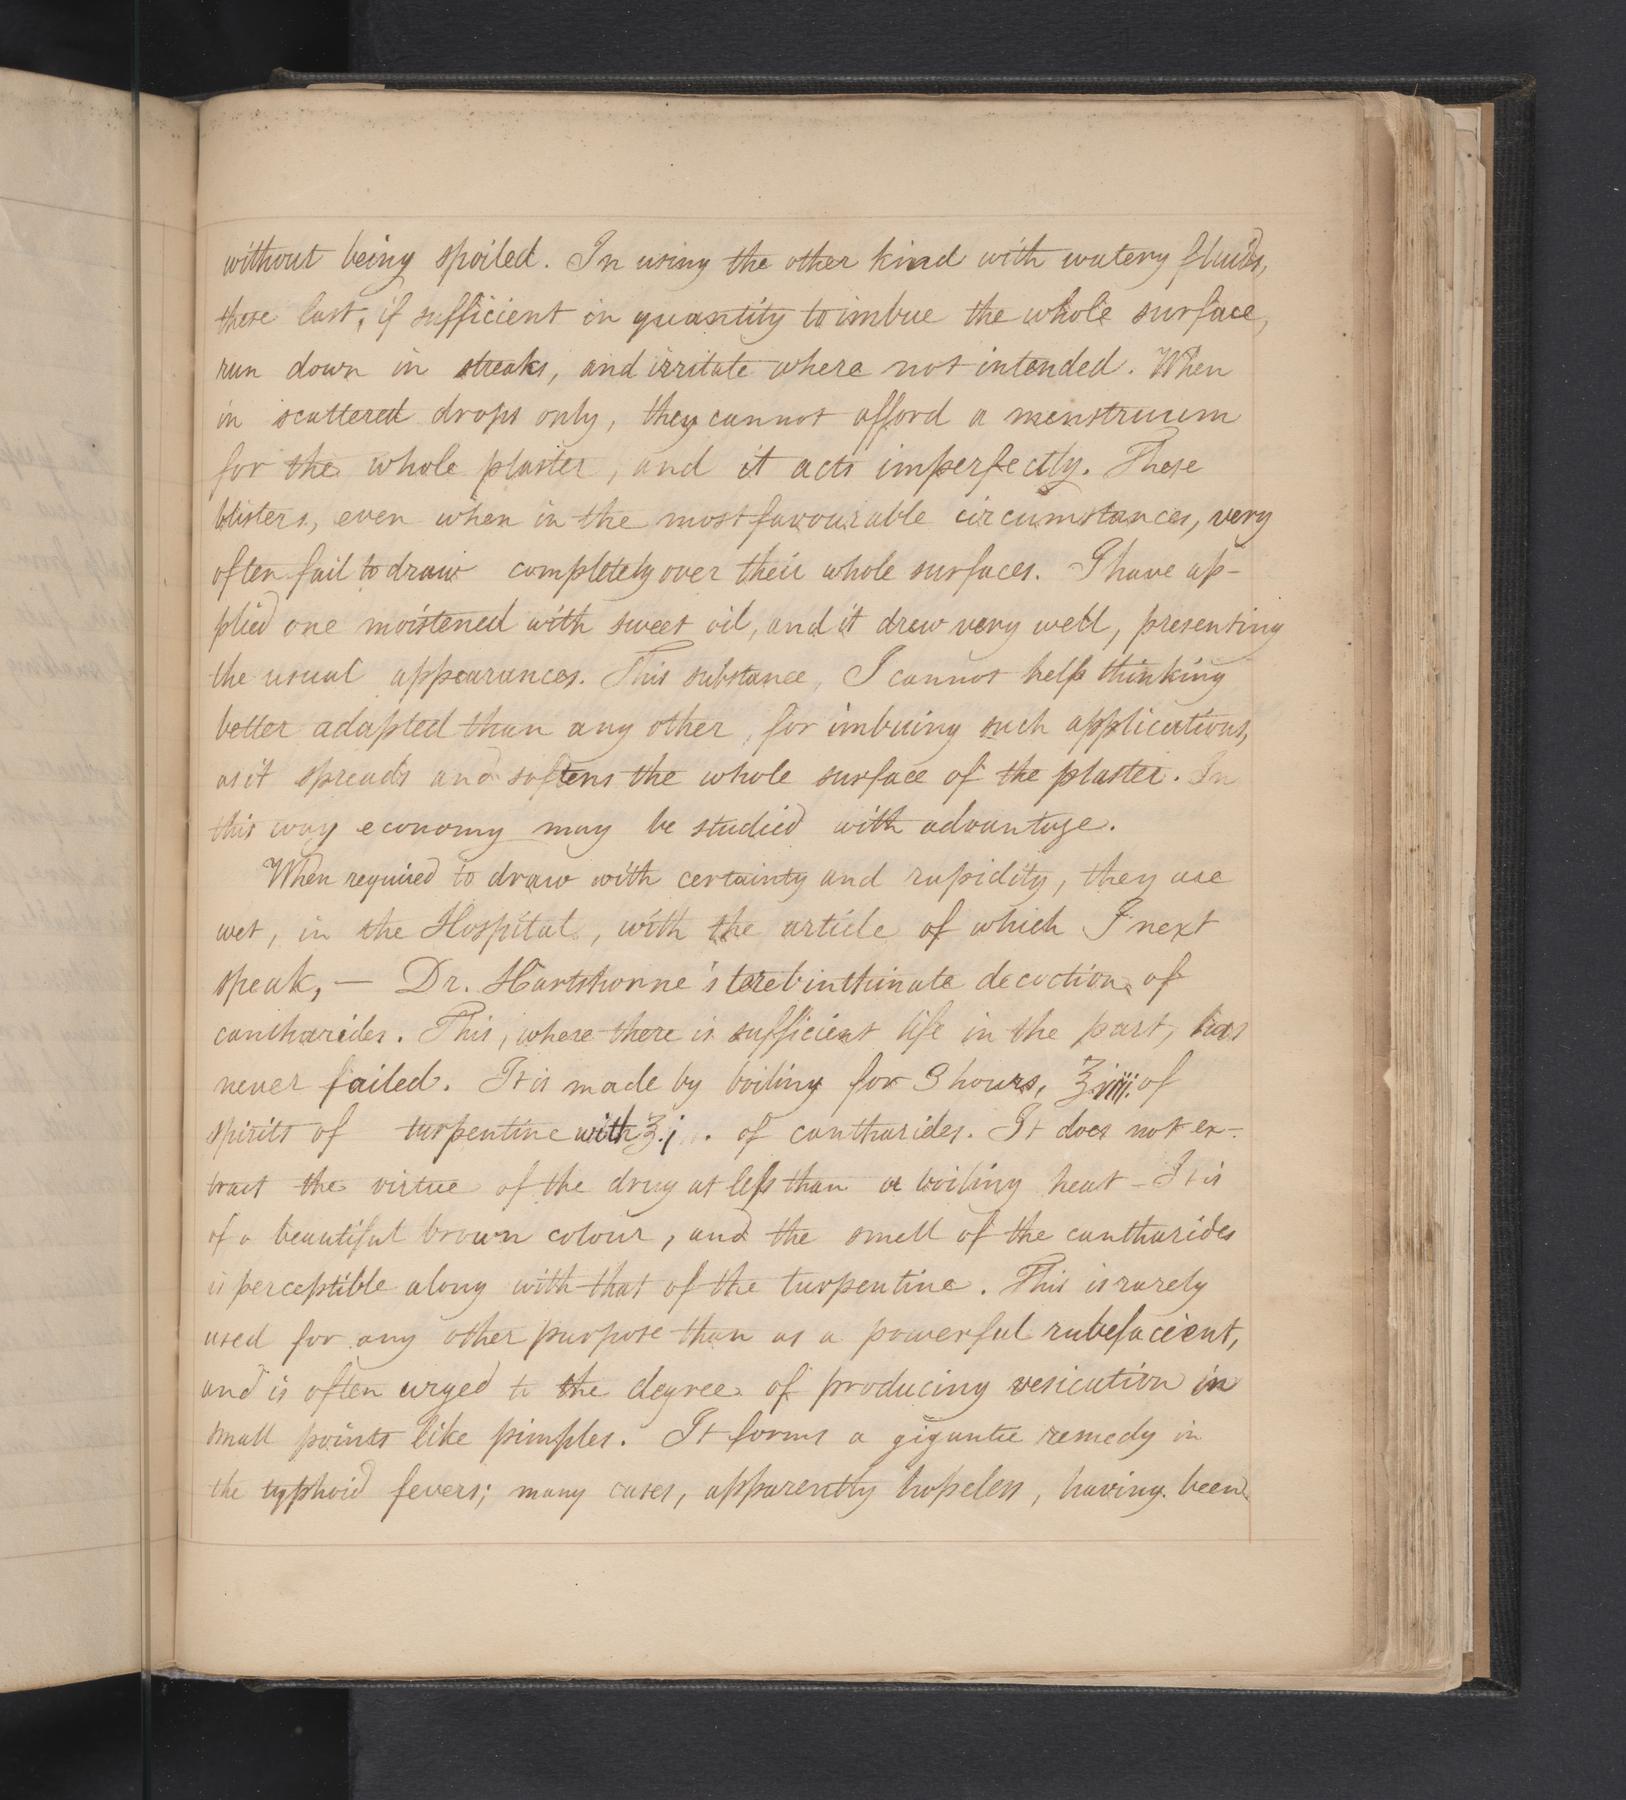 without being spoiled. In using the other kind with watery fluids,
these last, if sufficient in quantity to imbue the whole surface,
run down in streaks, and irritate where not intended. When
in scattered drops only, they cannot afford a menstruum
for the whole plaster, and it acts imperfectly. These
blisters, even when in the most favourable circumstances, very
often fail to draw completely over their whole surfaces. I have ap-
plied one moistened with sweet oil, and it drew very well, presenting
the usual appearances. This substance, I cannot help thinking
better adapted than any other, for imbuing such applications,
as it spreads and softens the whole surface of the plaster. In
this way economy may be studied with advantage.
When required to draw with certainty and rapidity, they are
wet, in the Hospital, with the article of which I next
speak, — Dr. Hartshorne's terebinthinate decoction of
cantharides. This, where there is sufficient life in the part, has
never failed. It is made by boiling for 3 hours, ℥viii. of
spirits of turpentine with ℥.j. of cantharides. It does not ex-
tract the virtue of the drug at less than a boiling heat – It is
of a beautiful brown colour, and the smell of the cantharides
is perceptible along with that of the turpentine. This is rarely
used for any other purpose than as a powerful rubefacient,
and is often urged to the degree of producing vesication in
small points like pimples. It forms a gigantic remedy in
the typhoid fevers; many cases, apparently hopeless, having been